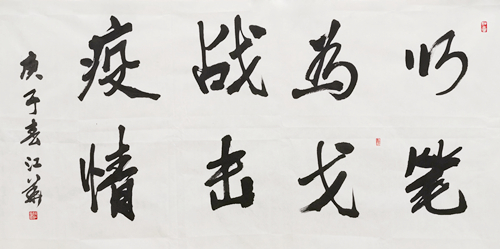 以笔
为戈
战击
疫情
庚子春江